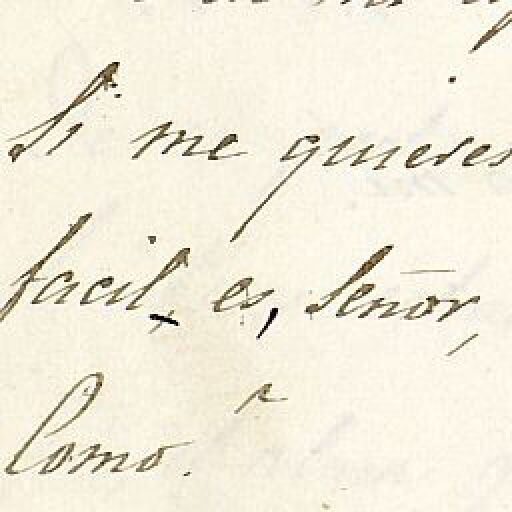 Si me quieres
facil es, Señor,
Como.